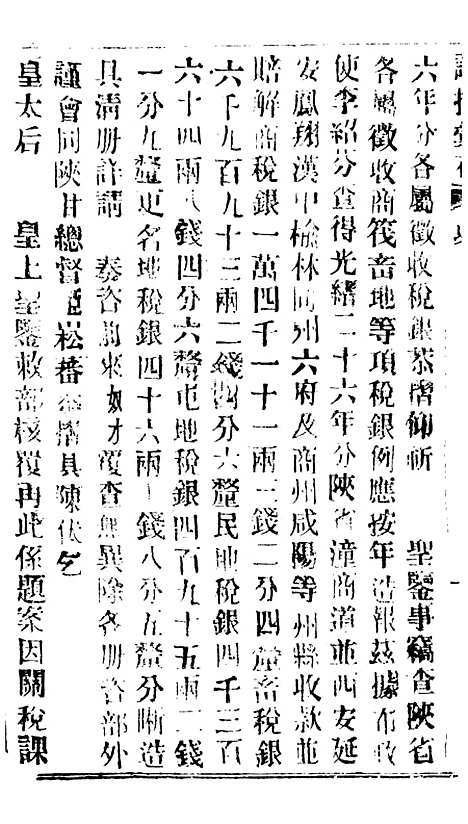 六年分各屬徵收稅銀恭摺仰祈 聖鑒事竊查陝省
各屬徵收商筏畜地等項稅銀例應按年造報茲據布政
使李紹芬查得光緒二十六年分陝省潼商道並西安延
安鳳翔漢中榆林同州六府及商州咸陽等州縣收款並
賠解商稅銀一萬四千一十一兩三錢二分四釐畜稅銀
六千九百九十三兩二錢四分六釐民地稅銀四千三百
六十四兩八錢四分六釐屯地稅銀四百九十五兩二錢
一分九釐更名地稅銀四十六兩一錢八分五釐分晰造
具清册詳請 奏咨前來奴才覆查無異除各册咨部外
謹會同陝甘總督臣崧蕃恭摺具陳伏乞
皇太后 皇上聖鑒敕部核覆再此係題案因關稅課